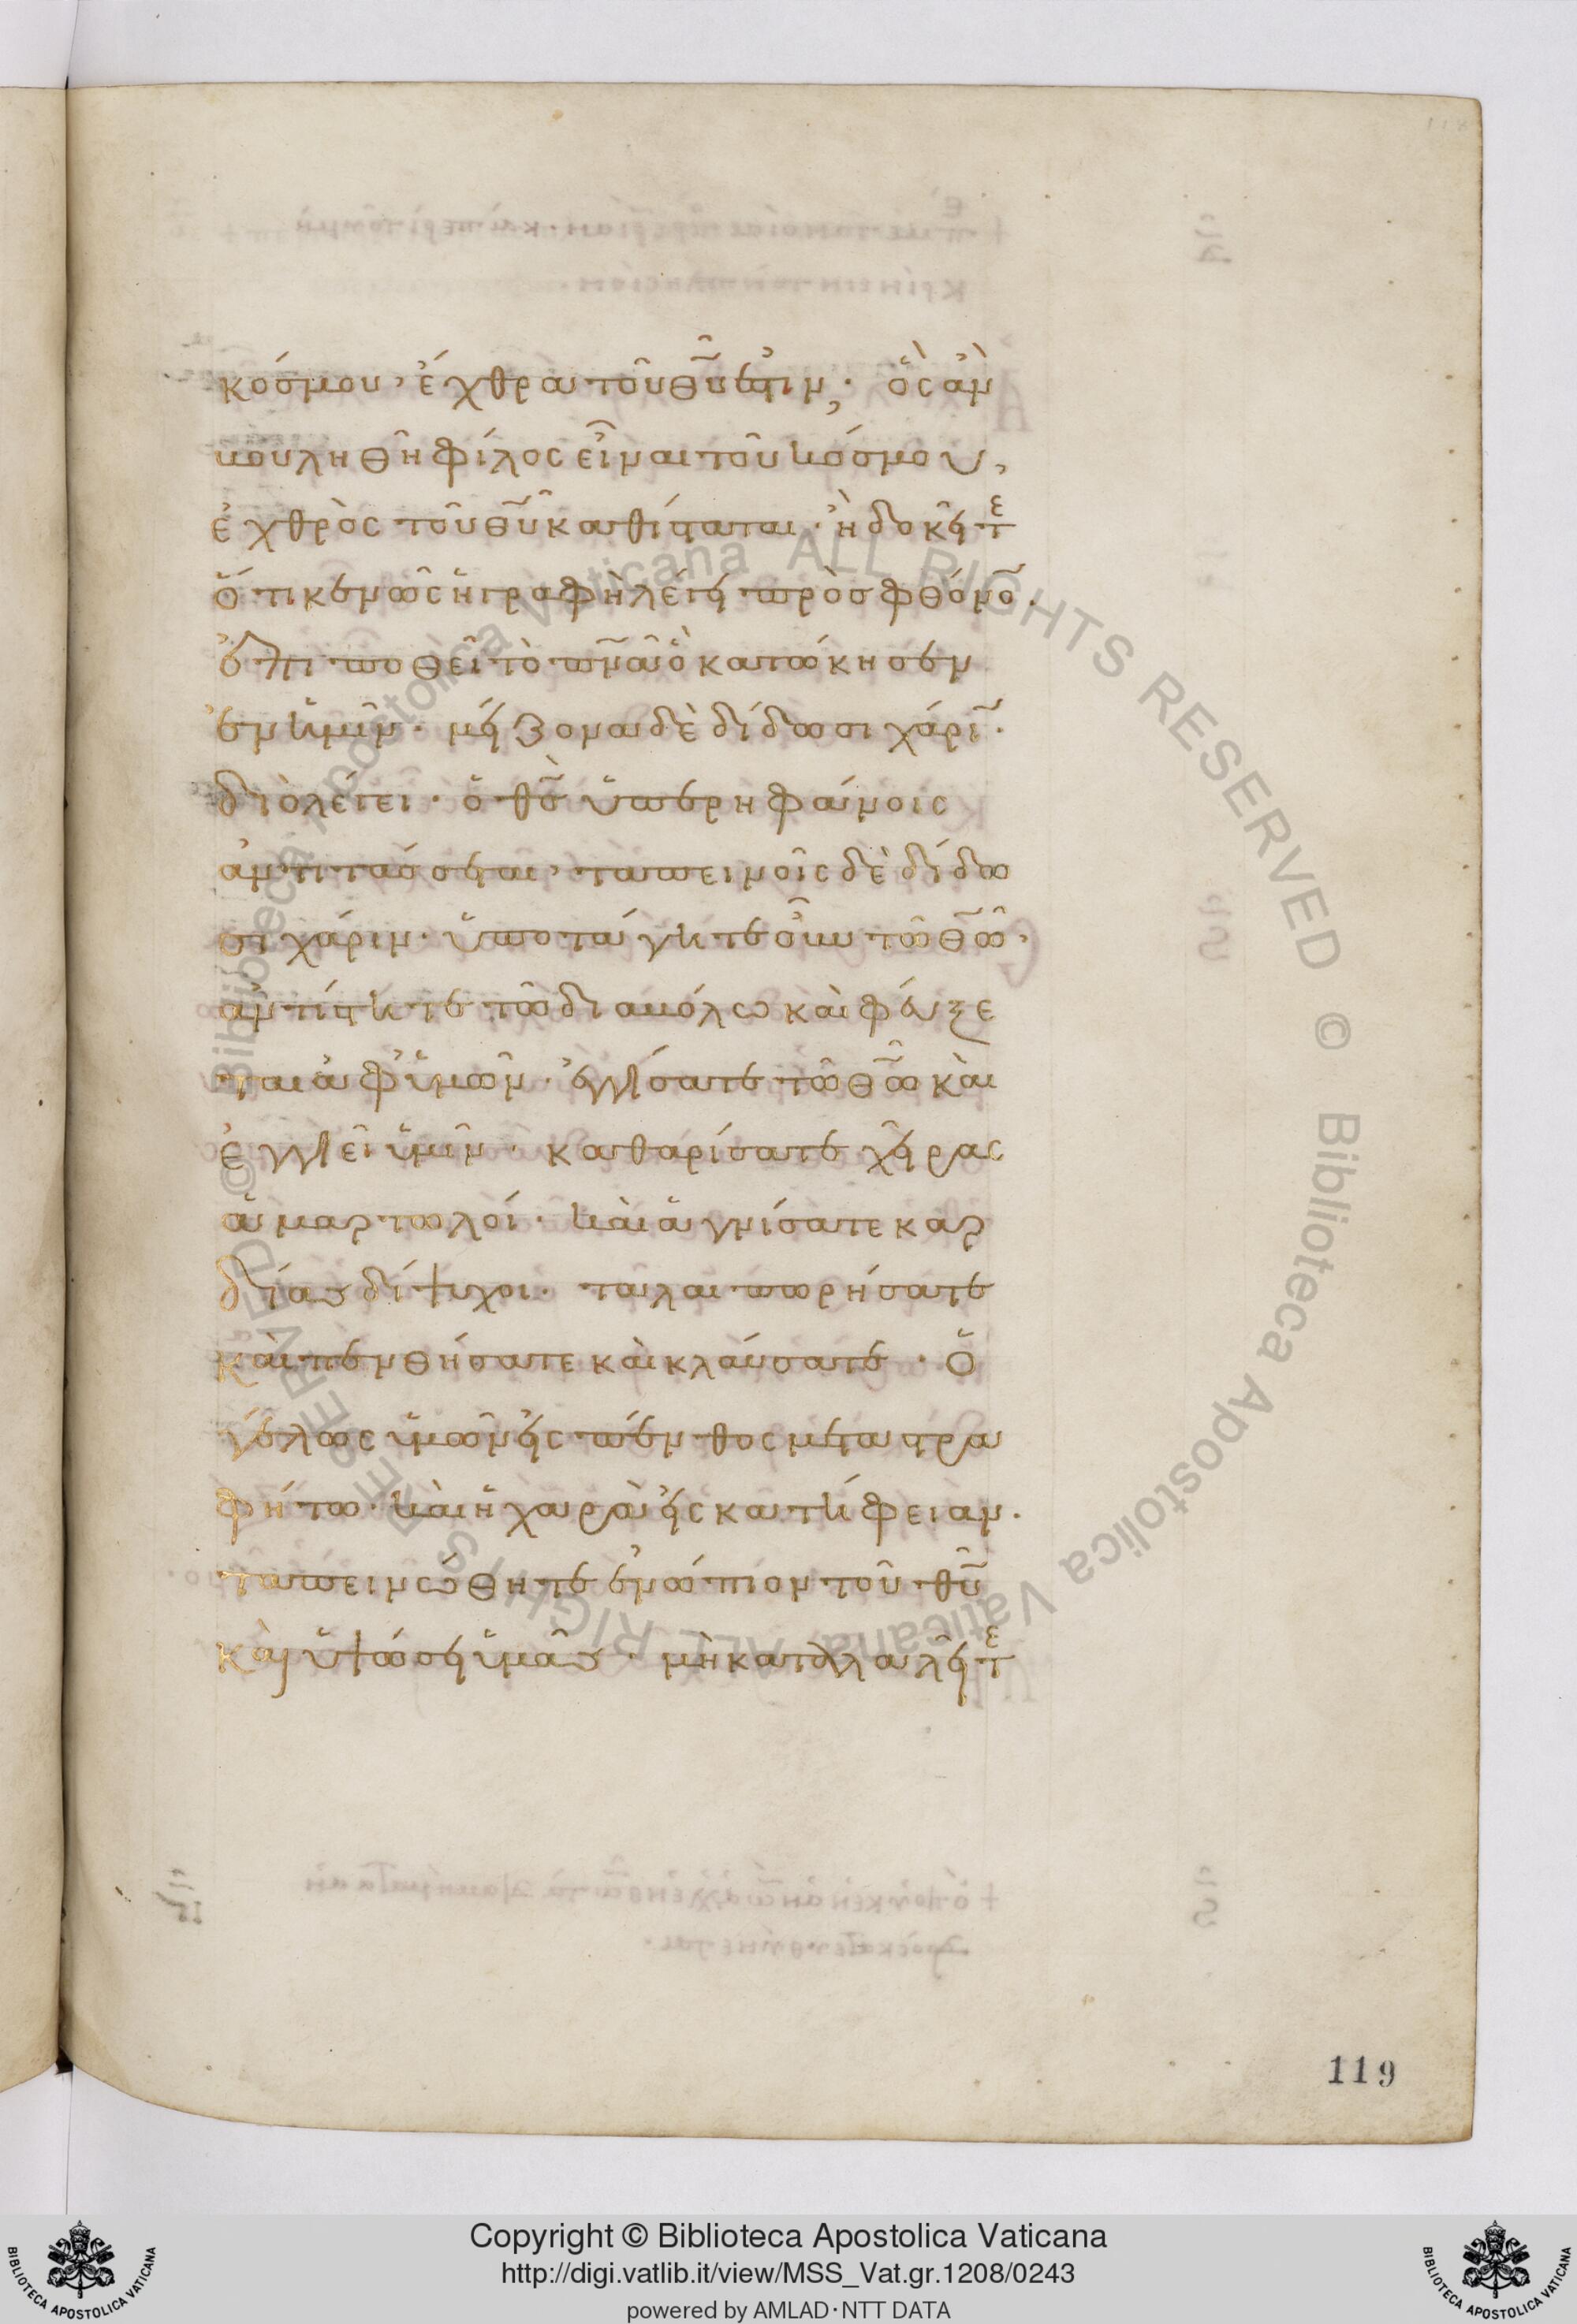 κόσμου, ἔχθρα τοῦ θῦ ἐστιν; ὃς ἂν
βουληθῆ φίλος εἶναι τοῦ κόσμου,
ἐχθρὸς τοῦ θῦ καθίσταται · ἢ δοκεῖτε
ὅτι κενῶς ἡ γραφὴ λέγει πρὸς φθόνο̄ ·
ἐπιποθεῖ τὸ πνᾶ ὃ κατώκησεν
ἐν ἡμῖν · μείζονα δὲ δίδωσι χάρῑ ·
διὸ λέγει · ὁ θς̄ ὑπερηφάνοις
ἀντιτάσσεται, ταπεινοῖς δὲ δίδω
σι χάριν · ὑποτάγητε οὖν τῶ θῶ,
ἀντίστητε τῶ διαβόλω καὶ φεύξε
ται ἀφ' ὑμῶν · ἐγγίσατε τῶ θῶ καὶ
ἐγγιεῖ ὑμῖν · καθαρίσατε χεῖρας
ἁμαρτωλοί · καὶ ἁγνίσατε καρ
δίας δίψυχοι · ταλαιπωρήσατε
καὶ πενθήσατε καὶ κλαύσατε · ὁ
γέλως ὑμῶν εἰς πένθος μεταστρα
φήτω · καὶ ἡ χαρὰ εἰς κατήφειαν ·
ταπεινώθητε ἐνώπιον τοῦ θῦ
καὶ ὑψώσει ὑμᾶς · μὴ καταλαλεῖτε
119
Copyright © Biblioteca Apostolica Vaticana
http://digi.vatlib.it/view/MSS_Vat.gr.1208/0243
powered by AMLAD·NTT DATA
BIBLIOTECA APOSTOLICA VATICANA
BIBLIOTECA APOSTOLICA VATICANA
© Biblioteca Apostolica Vaticana ALL RIGHTS RESERVED © Biblioteca Apostolica Vaticana ALL RIGHTS RESERVED